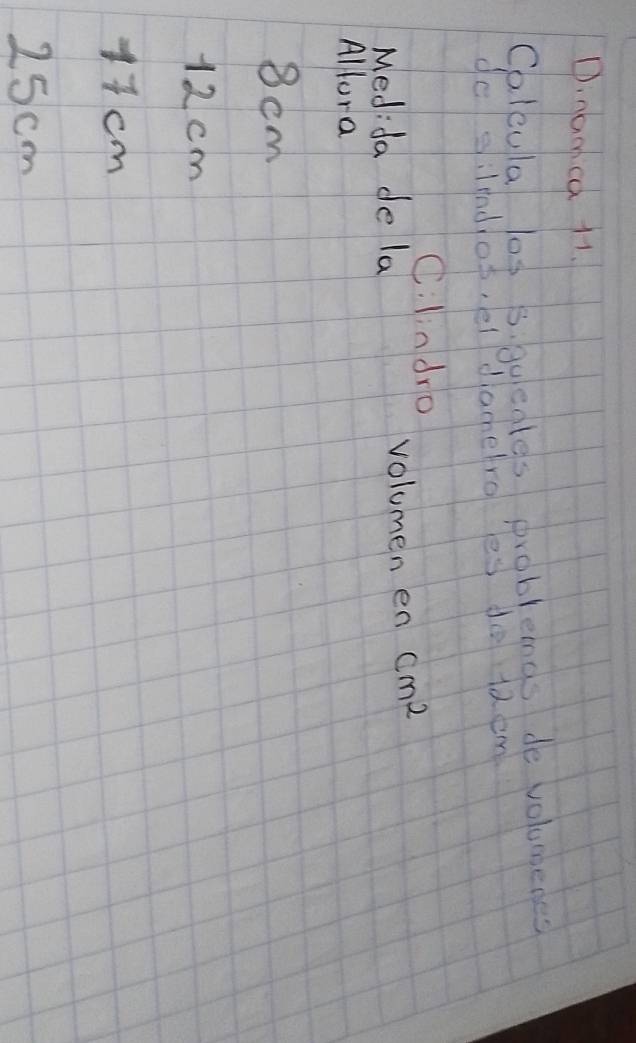 Dinamica 11.
Calcula los siguentes problemas de volumenes
de silindros, el diametro es de 12 cm
Cilindro
Medida de la volumen en cm²
Altura
8cm
12cm
17cm
25cm